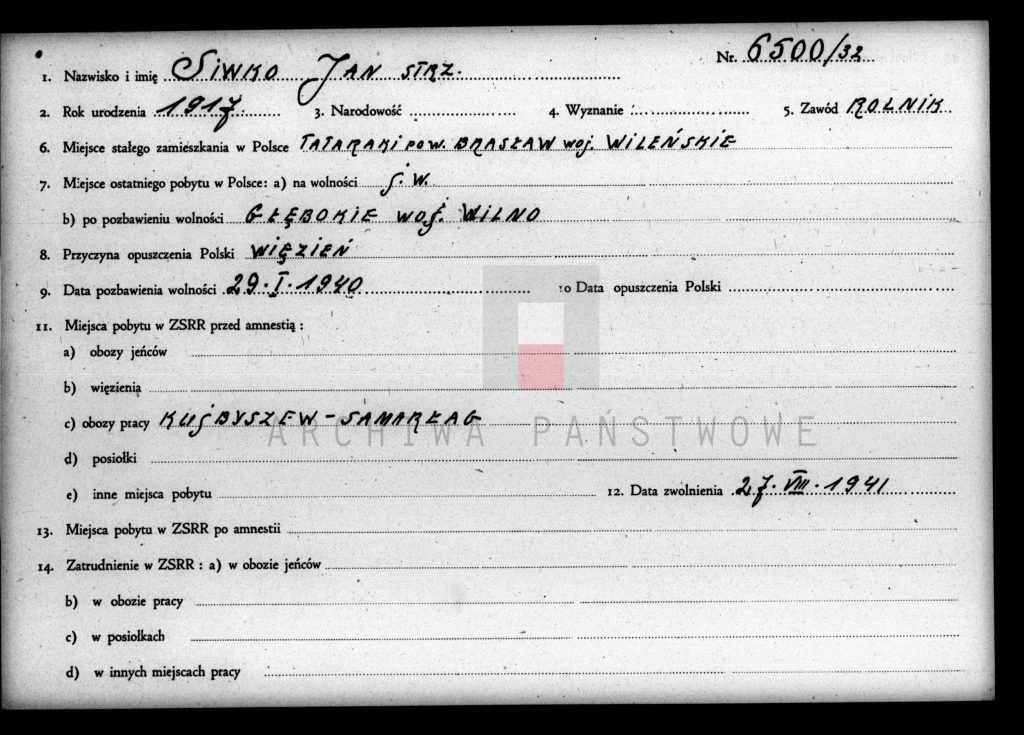 Nr. 6500/32
1. Nazwisko i imię SIWKO JAN STRZ.
2. Rok urodzenia 1917 3. Narodowość 4. Wyznanie 5. Zawód ROLNIK
6. Miejsce stałego zamieszkania w Polsce TATARAKI POW. BRASŁAW WOJ. WILEŃSKIE
7. Miejsce ostatniego pobytu w Polsce: a) na wolności J. W.
b) po pozbawieniu wolności GŁĘBOKIE WOJ. WILNO
8. Przyczyna opuszczenia Polski WIĘZIEŃ
9. Data pozbawienia wolności 29. I. 1940 10 Data opuszczenia Polski
11. Miejsca pobytu w ZSRR przed amnestią :
a) obozy jeńców
b) więzienia
c) obozy pracy KUJBYSZEW - SAMARŁAG
ARCHIWA PAŃSTWOWE
d) posiołki
e) inne miejsca pobytu 12. Data zwolnienia 27. VIII. 1941
13. Miejsca pobytu w ZSRR po amnestii
14. Zatrudnienie w ZSRR : a) w obozie jeńców
b) w obozie pracy
c) w posiołkach
d) w innych miejscach pracy